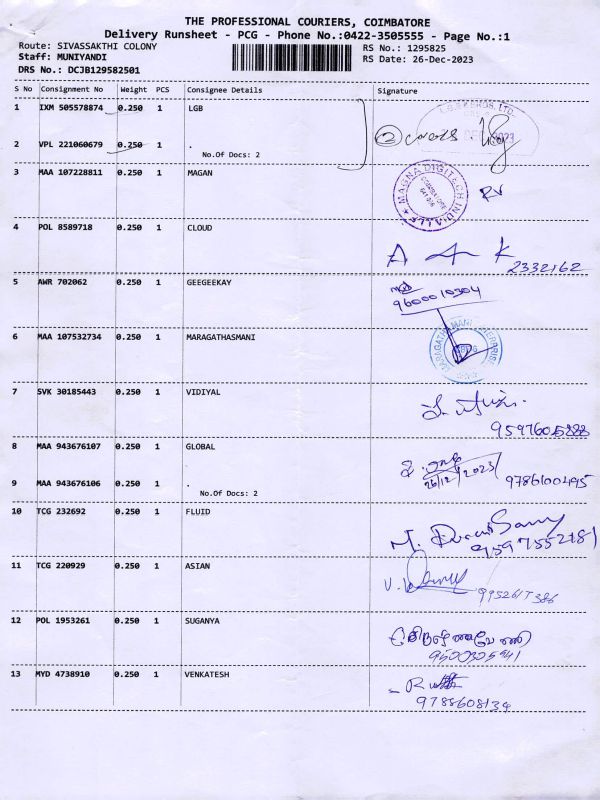 THE PROFESSIONAL COURIERS, COIMBATORE
Delivery Runsheet - PCG - Phone No.:0422-3505555 - Page No.:1
Route: SIVASSAKTHI COLONY
RS No.: 1295825
Staff: MUNIYANDI
RS Date: 26-Dec-2023
DRS No.: DCJB129582501
S No Consignment No Weight PCS Consignee Details Signature
1 IXM 505578874 0.250 1 LGB
2 VPL 221060679 0.250 1 .
No.Of Docs: 2
3 MAA 107228811 1 MAGAN
MAGNA DIGITECH INDIA LLP
RV
4 POL 8589718 0.250 1 CLOUD
2332162
5 AWR 702062 0.250 1 GEEGEEKAY
9600010304
6 MAA 107532734 0.250 1 MARAGATHASMANI
7 SVK 30185443 0.250 1 VIDIYAL
9597605888
8 MAA 943676107 0.250 1 GLOBAL
26/12/2023
9786100495
9 MAA 943676106 0.250 1 .
No.Of Docs: 2
10 TCG 232692 0.250 1 FLUID
9597552181
11 TCG 220929 0.250 1 ASIAN
9952617386
12 POL 1953261 0.250 1 SUGANYA
9500305941
13 MYD 4738910 0.250 1 VENKATESH
9788608134